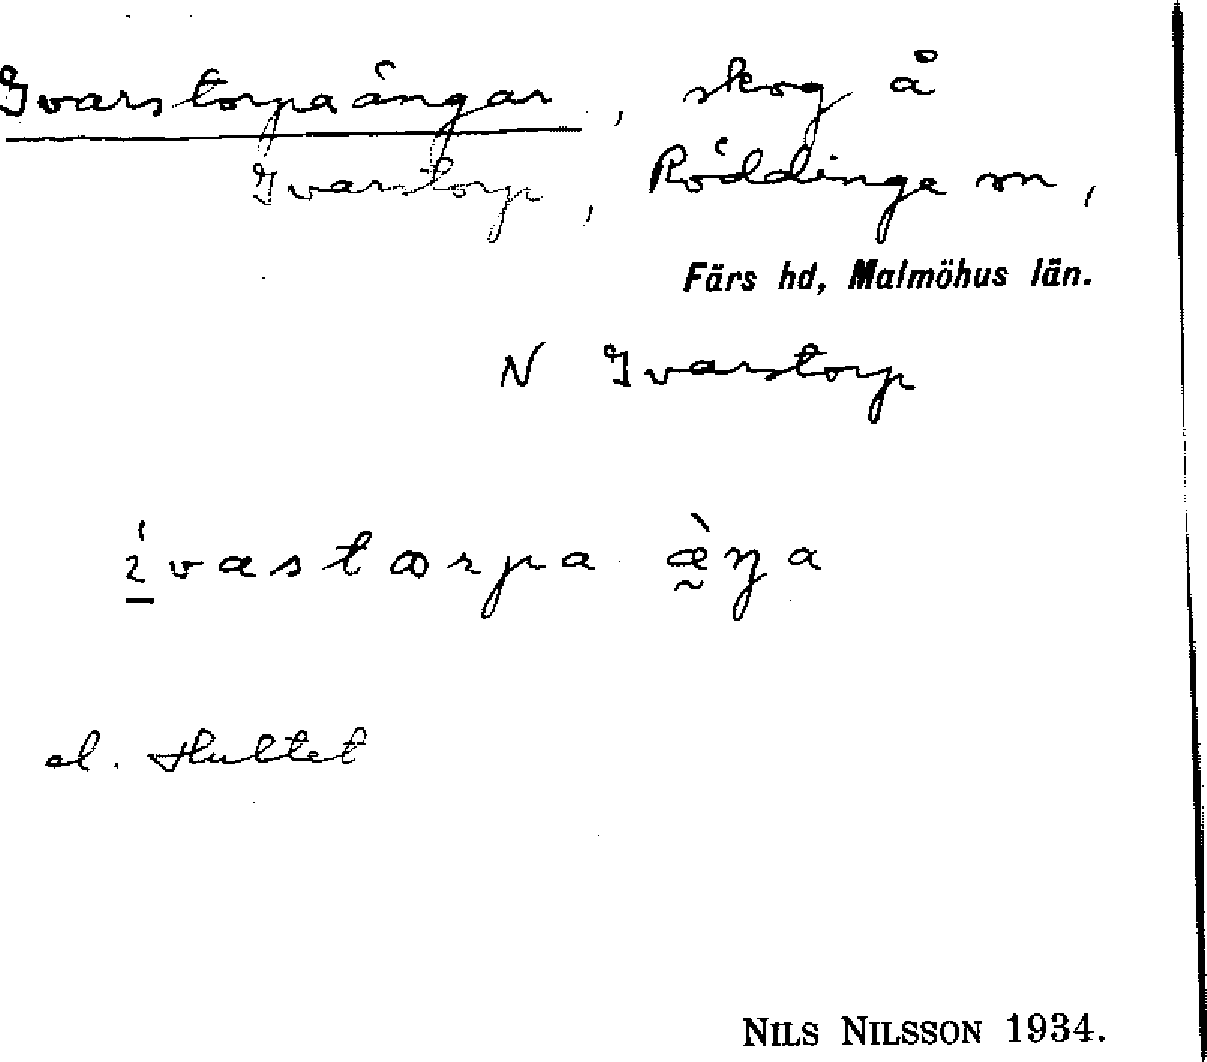 Ivarstorpaängar, skog å
Ivarstorp, Röddinge sn,
Färs hd, Malmöhus län.
N Ivarstorp
ívastɷrpa æ̀ŋa
el. Hultet
NILS NILSSON 1934.